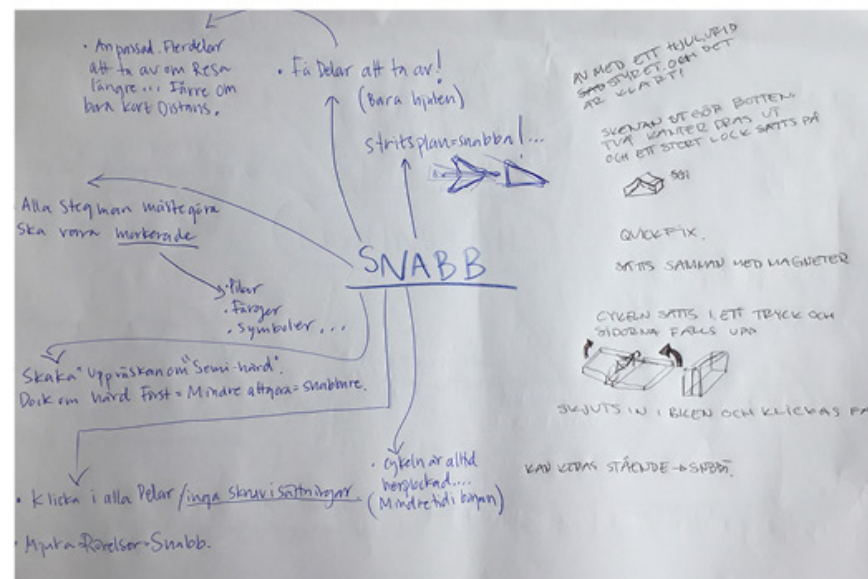 • Anpassad. Flerdelar
att ta av om Resa
längre... Färre om
bara kort Distans.
• Få Delar att ta av!
(Bara hjulen)
stritsplan=snabba!...
Alla steg man måste göra
ska vara markerade
• Pilar
• Färger
• Symboler...
SNABB
Skaka "uppväskan om "Semi-hård".
Dock om hård Först = Mindre att göra = snabbare.
• Klicka i alla Delar / inga skruvisättningar.
• Mjuka Rörelser = Snabb.
• Cykeln är alltid
herplockad....
(Mindre tid i början)
AV MED ETT HJUL, VRID
STYRET OCH DET
ÄR KLART!
SKENAN UTGÖR BOTTEN.
TVÅ KANTER DRAS UT
OCH ETT STERT LOCK SÄTTS PÅ
QUICKFIX.
SÄTTS SAMMAN MED MAGNETER
CYKELN SÄTTS I ETT TRYCK OCH
SIDORNA FÄLLS UPP
SKJUTS IN I BILEN OCH KLICKAS FA
KAN STÅENDE → SNABB.